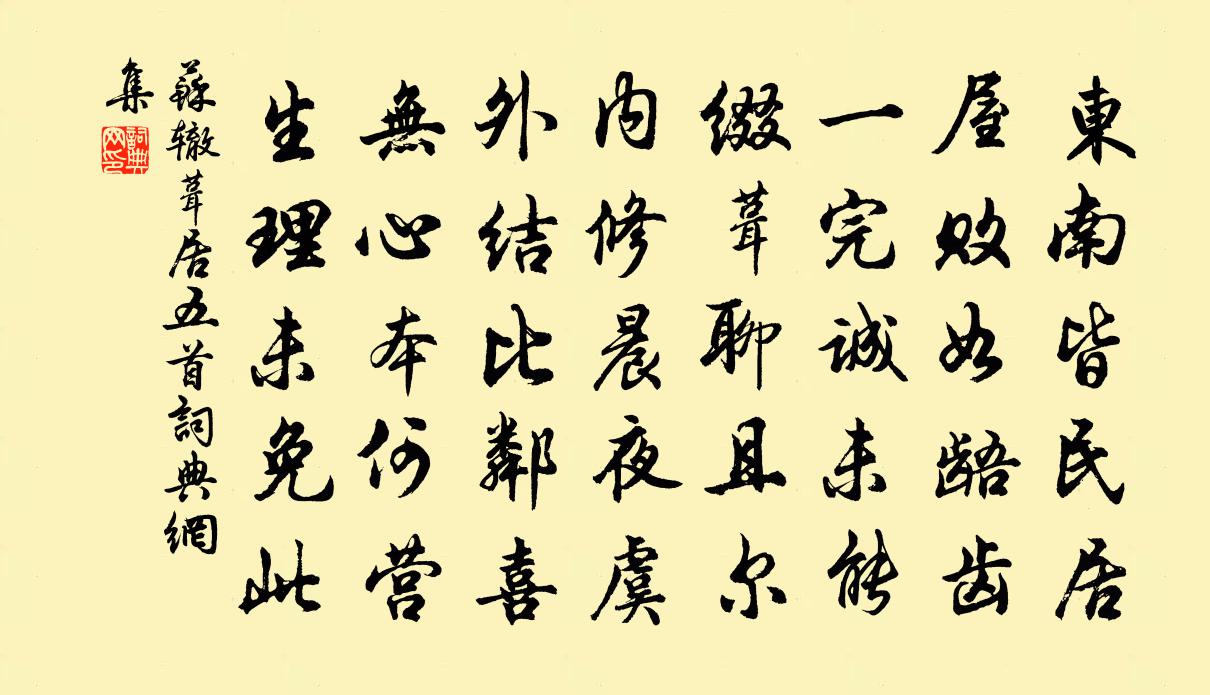 東南皆民居
屋敗如齬齿
一完诚未能
缀葺聊且尔
内修晨夜虞
外结比鄰喜
無心本何营
生理未免此
蘇辙葺居五首詞典網
集
詞典
网印